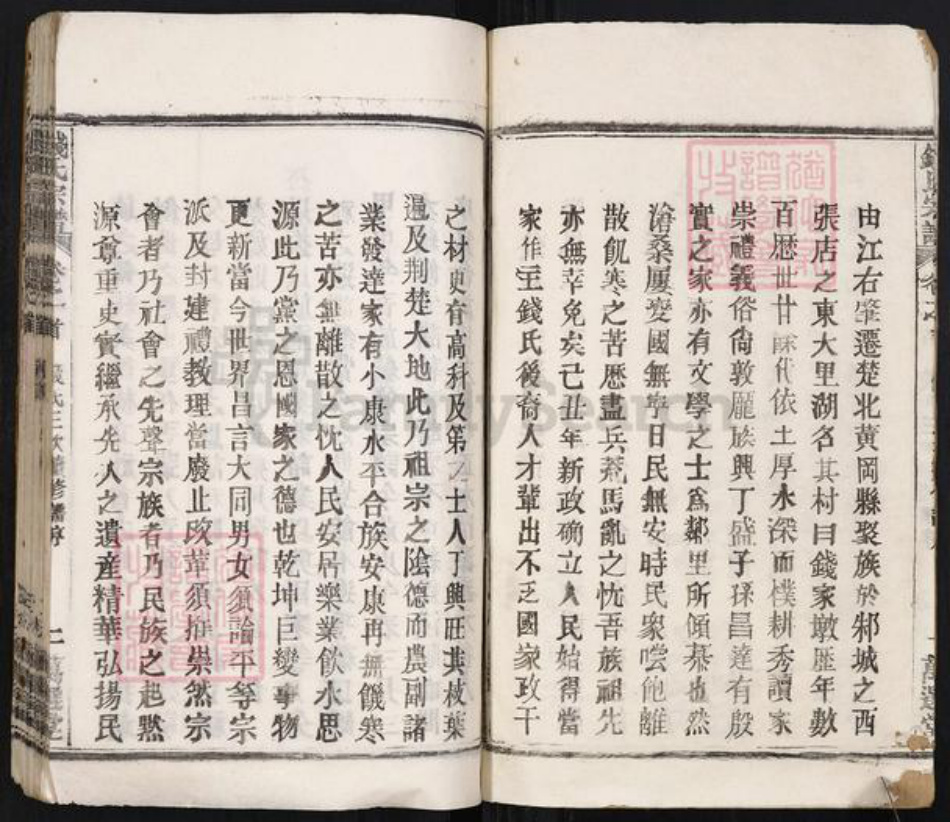 由江右肇遷楚北黃岡縣聚族於邾城之西
張店之東大里湖名其村曰錢家墩歷年數
百歷世廿餘代依土厚水深而樸耕秀讀家
崇禮義俗尙敦龐族興丁盛子孫昌達有殷
實之家亦有文學之士爲鄰里所傾慕也然
滄桑屢变國無寧日民無安時民衆嚐飽離
散飢寒之苦歷盡兵荒馬亂之忧吾族祖先
亦無幸免矣己丑年新政确立人民始得當
家作主錢氏後裔人才輩出不乏國家政干
之材更有高科及第之士人丁興旺其枝葉
遍及荆楚大地此乃祖宗之陰德而農副諸
業發達家有小康水平合族安康再無饑寒
之苦亦無離散之忧人民安居樂業飲水思
源此乃黨之恩國家之德也乾坤巨變事物
更新當今世界昌言大同男女須論平等宗
派及封建禮教理當廢止改革須推崇然宗
會者乃社會之先聲宗族者乃民族之起點
源尊重史實繼承先人之遺産精華弘揚民
錢氏宗譜
卷之一首
錢氏三次續修譜序
二
萬選堂
FamilySearch